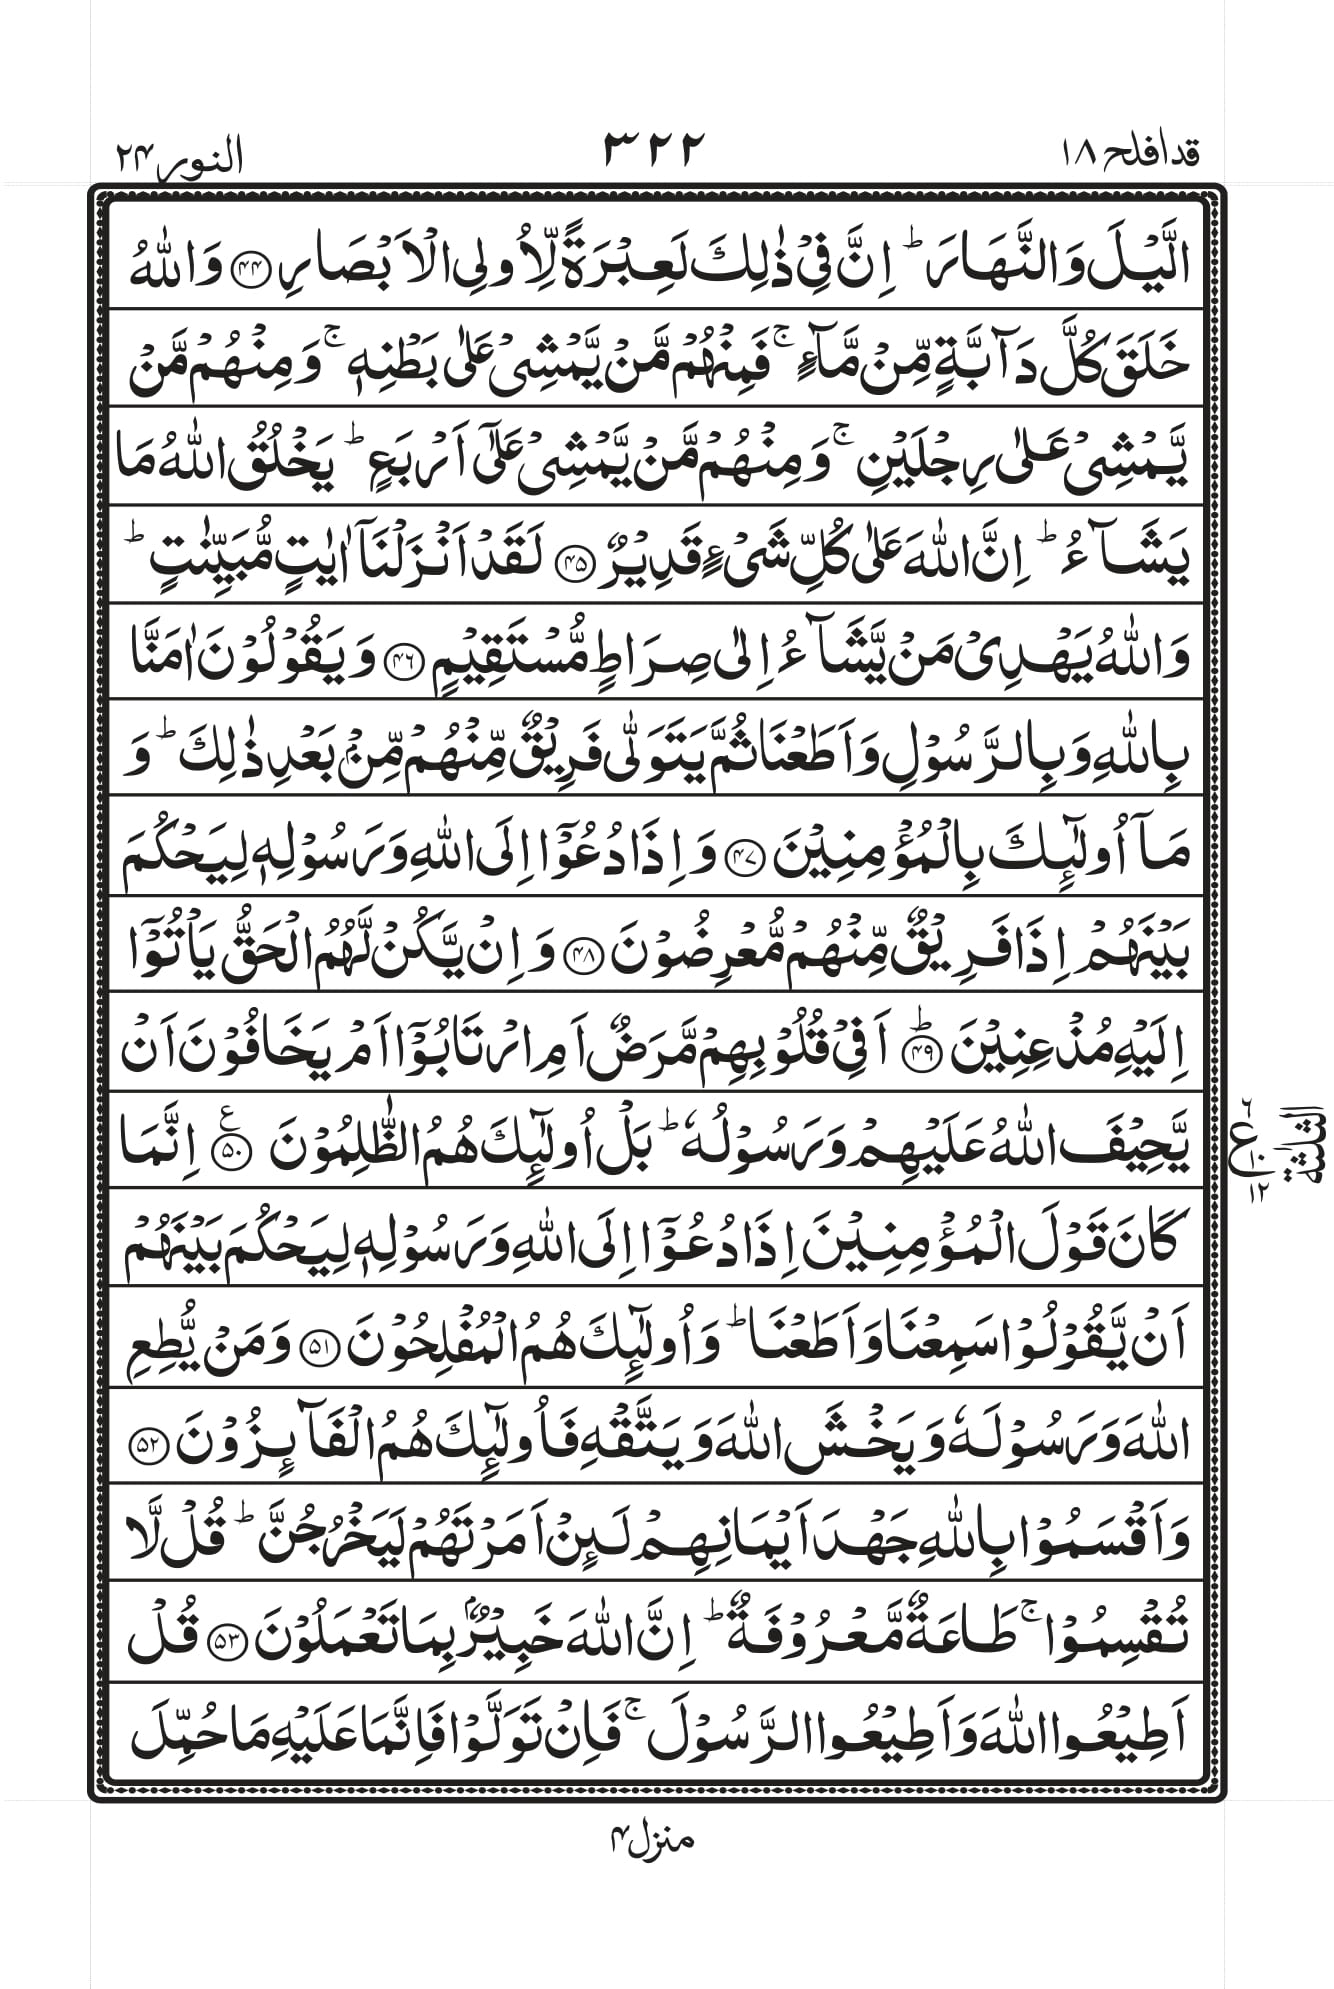 قدافلح ۱۸
۳۲۲
النور ۲۴
الَّیۡلَ وَالنَّهَارَ ؕ اِنَّ فِیۡ ذٰلِكَ لَعِبۡرَةً لِّاُولِی الۡاَبۡصَارِ ﴿۴۴﴾ وَاللّٰهُ
خَلَقَ كُلَّ دَآبَّةٍ مِّنۡ مَّآءٍ ۚ فَمِنۡهُمۡ مَّنۡ یَّمۡشِیۡ عَلٰی بَطۡنِهٖ ۚ وَمِنۡهُمۡ مَّنۡ
یَّمۡشِیۡ عَلٰی رِجۡلَیۡنِ ۚ وَمِنۡهُمۡ مَّنۡ یَّمۡشِیۡ عَلٰۤی اَرۡبَعٍ ؕ یَخۡلُقُ اللّٰهُ مَا
یَشَآءُ ؕ اِنَّ اللّٰهَ عَلٰی كُلِّ شَیۡءٍ قَدِیۡرٌ ﴿۴۵﴾ لَقَدۡ اَنۡزَلۡنَاۤ اٰیٰتٍ مُّبَیِّنٰتٍ ؕ
وَاللّٰهُ یَهۡدِیۡ مَنۡ یَّشَآءُ اِلٰی صِرَاطٍ مُّسۡتَقِیۡمٍ ﴿۴۶﴾ وَیَقُوۡلُوۡنَ اٰمَنَّا
بِاللّٰهِ وَبِالرَّسُوۡلِ وَاَطَعۡنَا ثُمَّ یَتَوَلّٰی فَرِیۡقٌ مِّنۡهُمۡ مِّنۡۢ بَعۡدِ ذٰلِكَ ؕ وَ
مَاۤ اُولٰٓئِكَ بِالۡمُؤۡمِنِیۡنَ ﴿۴۷﴾ وَاِذَا دُعُوۡۤا اِلَی اللّٰهِ وَرَسُوۡلِهٖ لِیَحۡكُمَ
بَیۡنَهُمۡ اِذَا فَرِیۡقٌ مِّنۡهُمۡ مُّعۡرِضُوۡنَ ﴿۴۸﴾ وَاِنۡ یَّكُنۡ لَّهُمُ الۡحَقُّ یَاۡتُوۡۤا
اِلَیۡهِ مُذۡعِنِیۡنَ ﴿ؕ۴۹﴾ اَفِیۡ قُلُوۡبِهِمۡ مَّرَضٌ اَمِ ارۡتَابُوۡۤا اَمۡ یَخَافُوۡنَ اَنۡ
یَّحِیۡفَ اللّٰهُ عَلَیۡهِمۡ وَرَسُوۡلُهٗ ؕ بَلۡ اُولٰٓئِكَ هُمُ الظّٰلِمُوۡنَ ﴿۵۰﴾ ع اِنَّمَا
كَانَ قَوۡلَ الۡمُؤۡمِنِیۡنَ اِذَا دُعُوۡۤا اِلَی اللّٰهِ وَرَسُوۡلِهٖ لِیَحۡكُمَ بَیۡنَهُمۡ
اَنۡ یَّقُوۡلُوۡا سَمِعۡنَا وَاَطَعۡنَا ؕ وَاُولٰٓئِكَ هُمُ الۡمُفۡلِحُوۡنَ ﴿۵۱﴾ وَمَنۡ یُّطِعِ
اللّٰهَ وَرَسُوۡلَهٗ وَیَخۡشَ اللّٰهَ وَیَتَّقۡهِ فَاُولٰٓئِكَ هُمُ الۡفَآئِزُوۡنَ ﴿۵۲﴾
وَاَقۡسَمُوۡا بِاللّٰهِ جَهۡدَ اَیۡمَانِهِمۡ لَئِنۡ اَمَرۡتَهُمۡ لَیَخۡرُجُنَّ ؕ قُلۡ لَّا
تُقۡسِمُوۡا ۚ طَاعَةٌ مَّعۡرُوۡفَةٌ ؕ اِنَّ اللّٰهَ خَبِیۡرٌۢ بِمَا تَعۡمَلُوۡنَ ﴿۵۳﴾ قُلۡ
اَطِیۡعُوا اللّٰهَ وَاَطِیۡعُوا الرَّسُوۡلَ ۚ فَاِنۡ تَوَلَّوۡا فَاِنَّمَا عَلَیۡهِ مَا حُمِّلَ
۶ ع ۱۰ ۱۲
الثلثة
منزل ۴